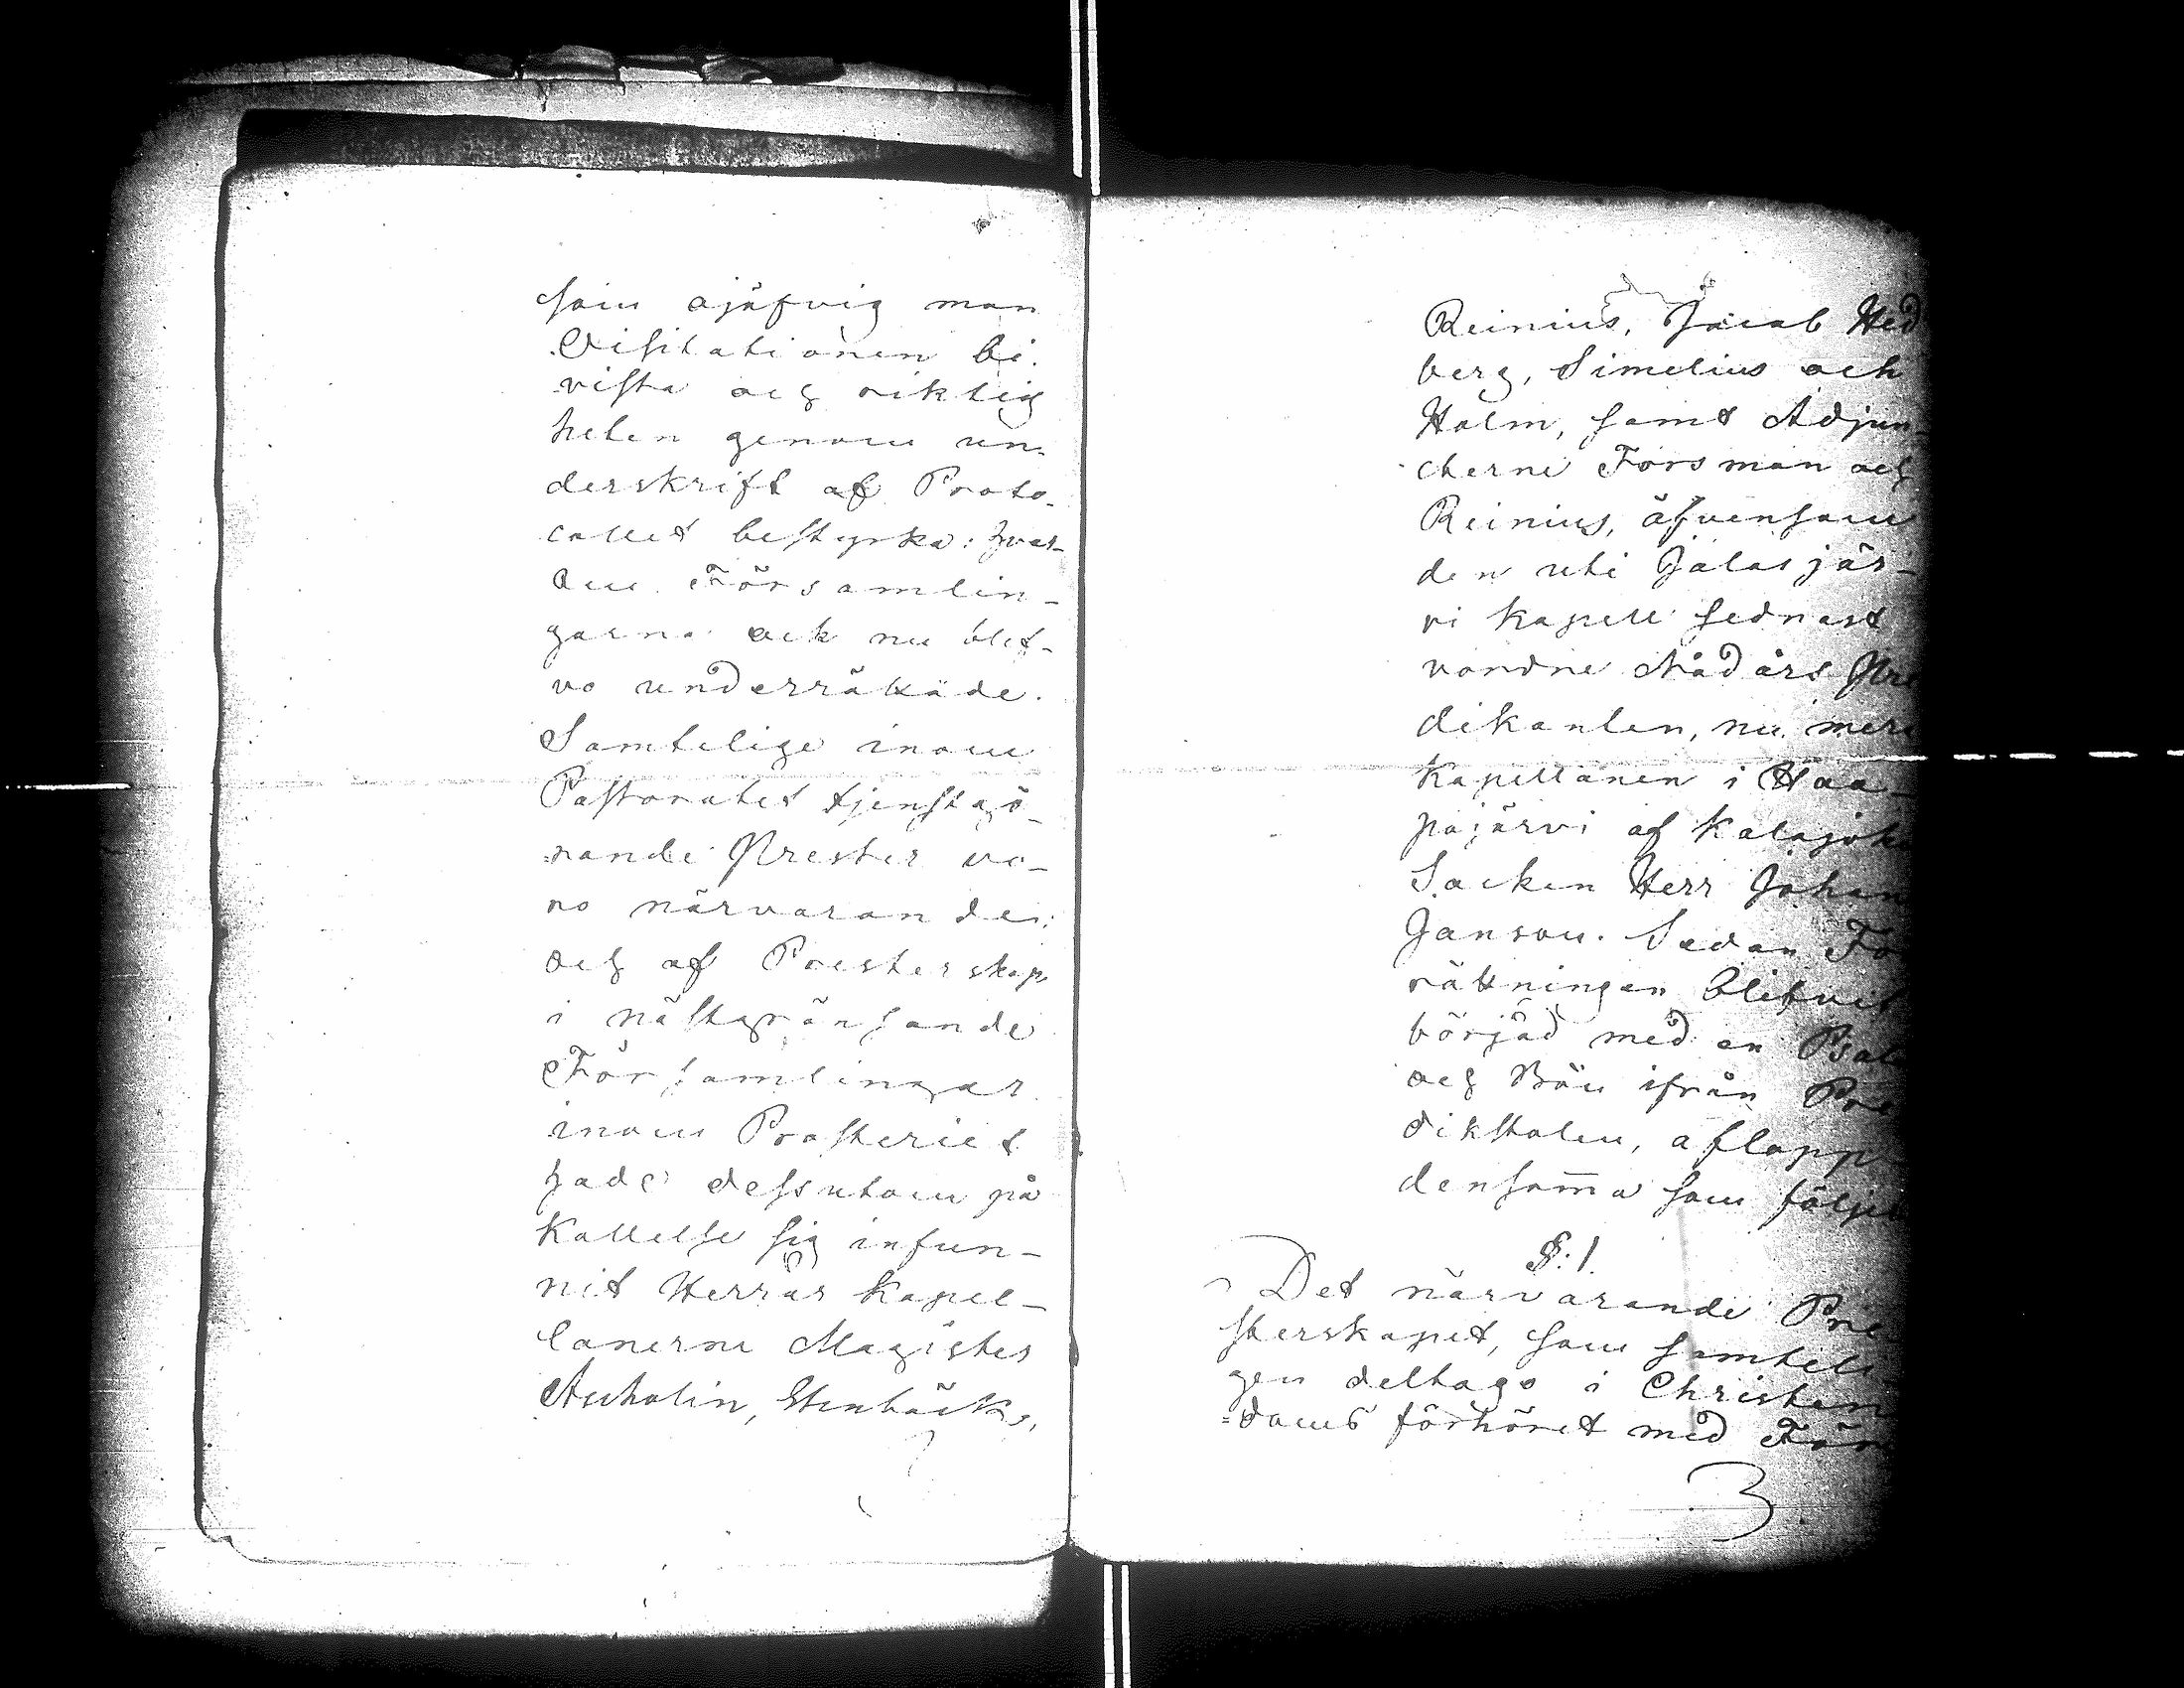 som ojäfvig man
Visitationen bi-
vista och riktig
heten genom un-
derskrift af Proto-
collet bestyrka: hvar-
om Församlin-
garna ock nu blef-
vo underrättade.
Samtelige inom
Pastoratet tjenstgö-
rande Prester vo-
ro närvarande:
och af Presterskap
i nästgränsande
Församlingar
inom Prosteriet
hade dessutom på
Kallelse sig infun-
nit Herrar Kapel-
lanerne Magister
Ascholin, Stenbäck,
Reinius, Jacob Hed
berg, Simelius och
Holm, samt Adjun-
cterne Forsman och
Reinius, äfvensom
den uti Jalasjär-
vi Kapell sednast
vordne Nådårs Pre
dikanten, nu mera
Kapellanen i Haa-
pajärvi af Kalajoki
Socken Herr Johan
Janson. Sedan För
rättningen blifvit
börjad med en Psalm
och Bön ifrån Pre
dikstolen, aflopp
densam̅a som följer
§: 1.
Det närvarande Pre
sterskapet, som samteli
gen deltago i Christen
=doms förhöret med För
3